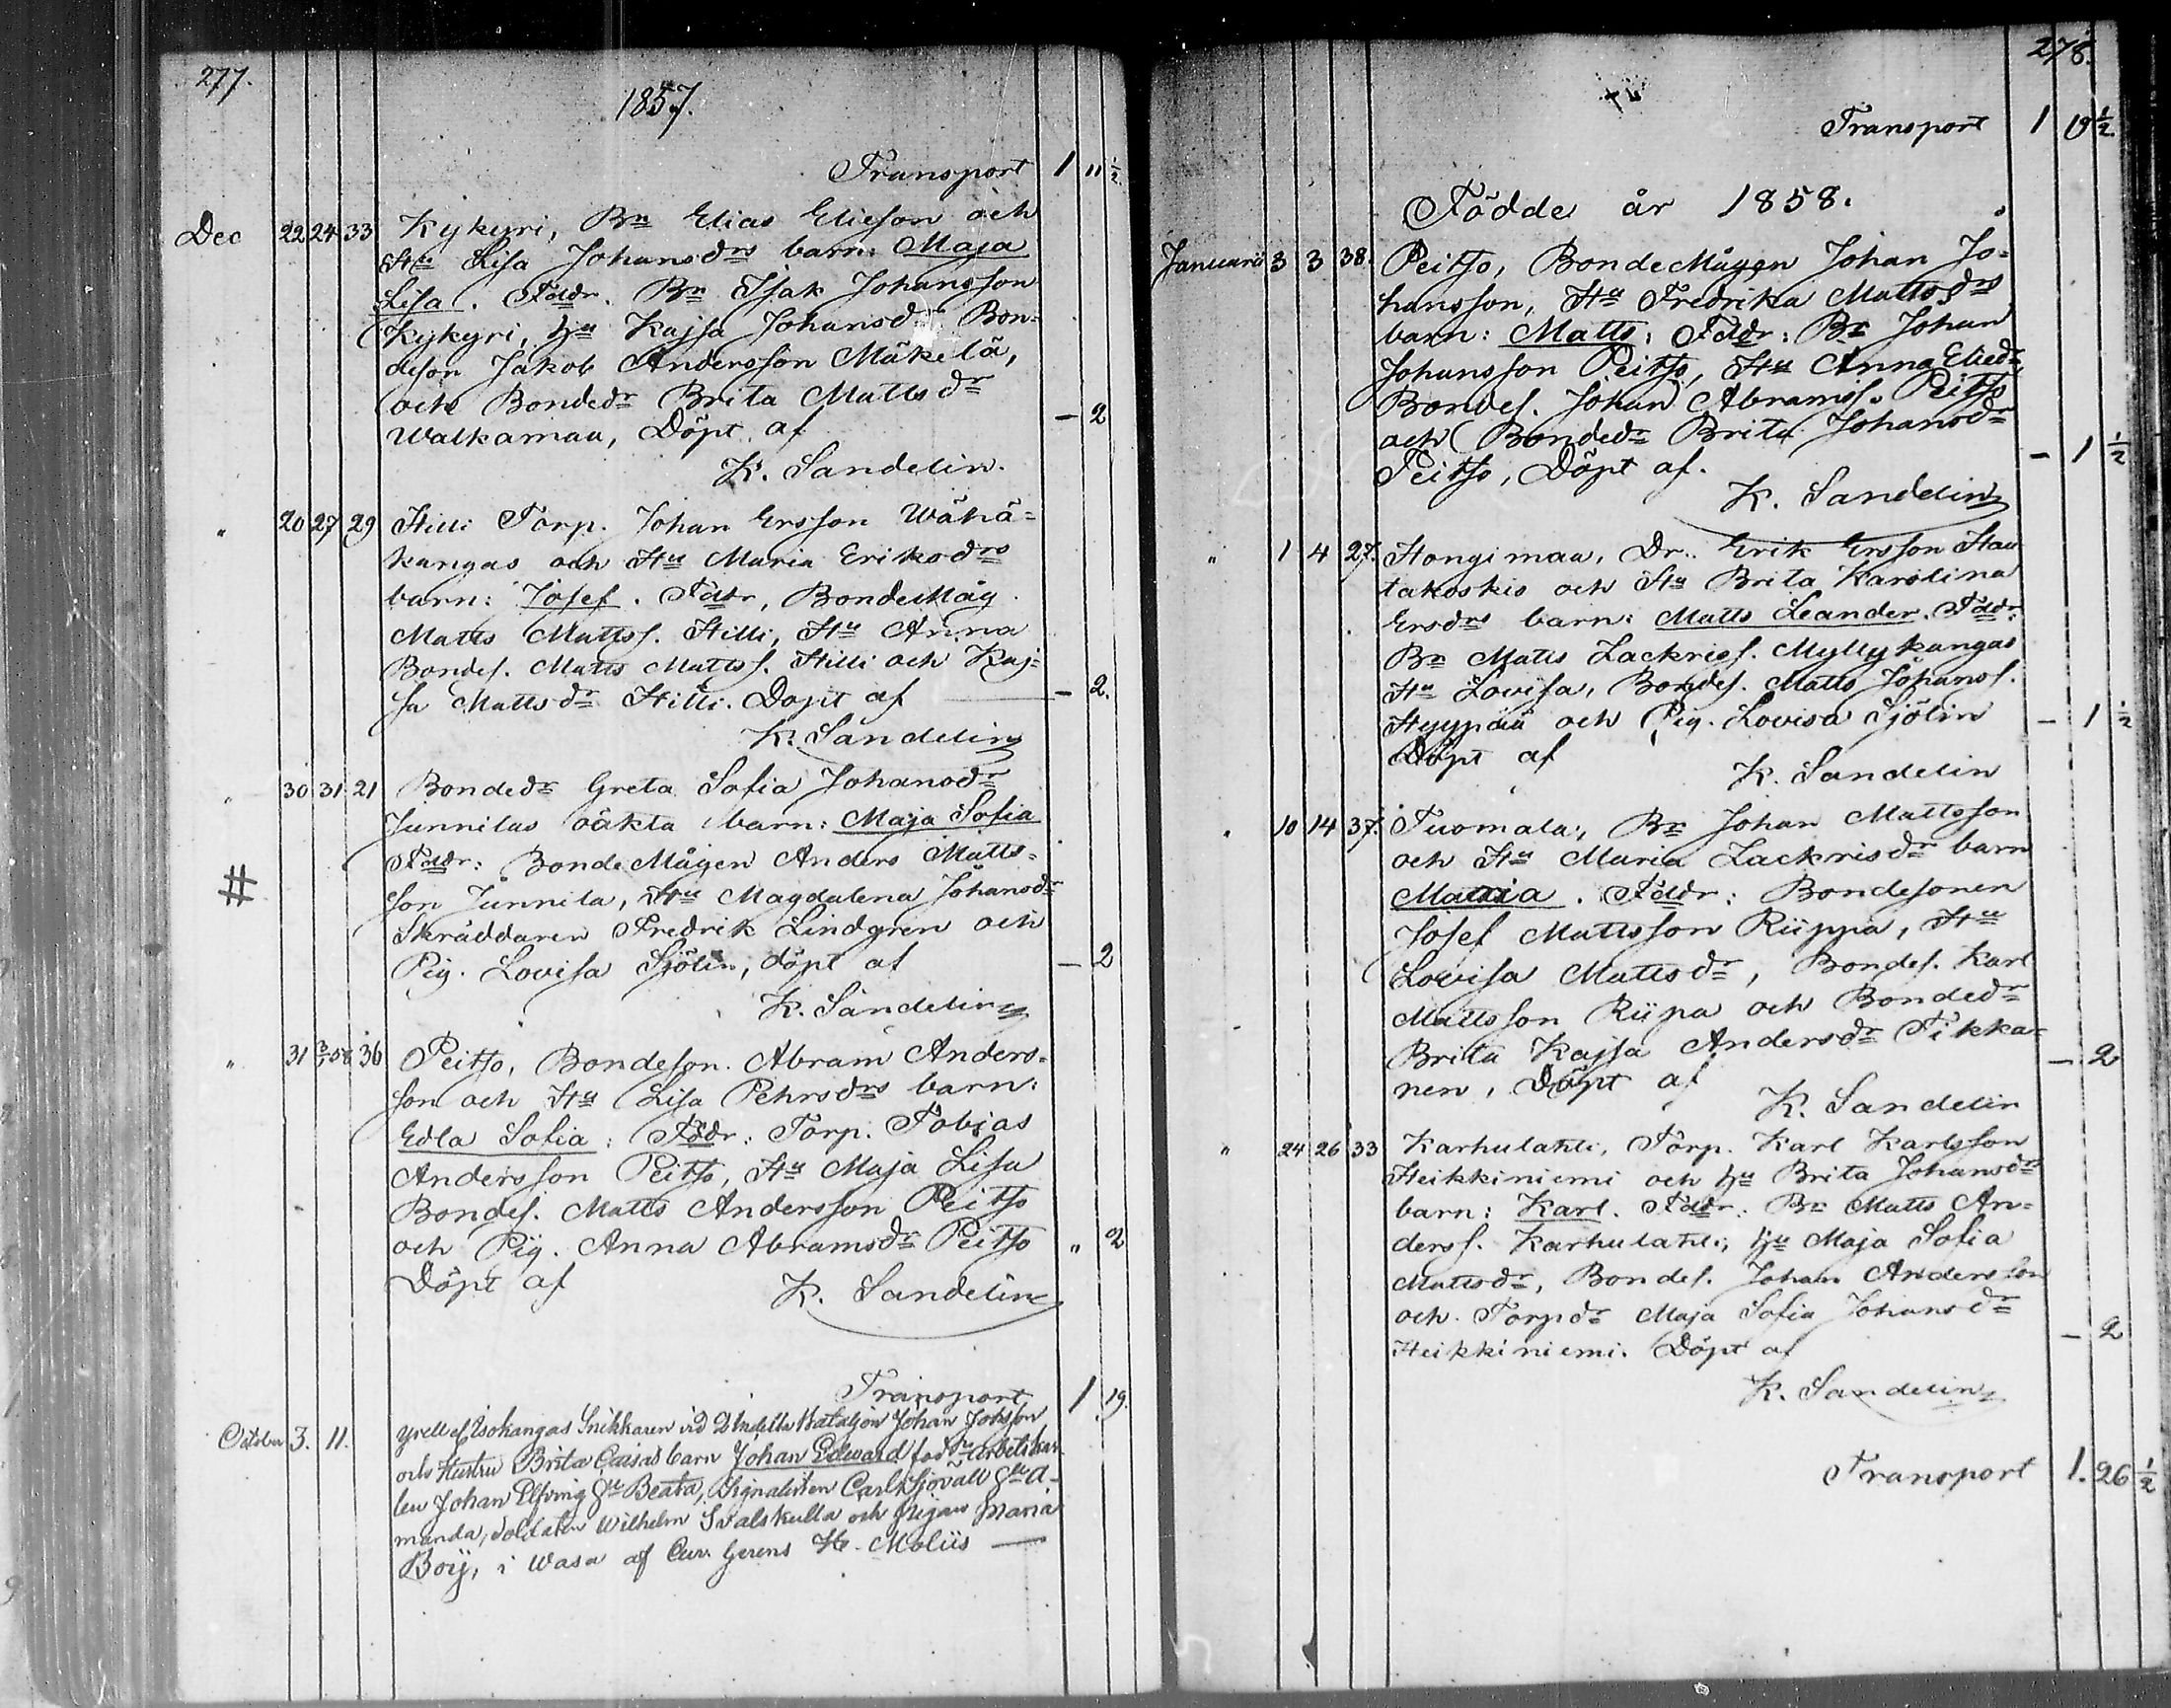 277.
1857.
Transport 1 11 1/2
Dec 22 24 33 Kykyri, Bn Elias Elieson och
Hu Lisa Johansdrs barn: Maja
Lisa. Faddr. Bn Isak Johansson
Kykyri, hu Kajsa Johansdr Bon-
deson Jakob Andersson Mäkelä,
och Bondedr Brita Mattsdr
Walkamaa, Döpt af — 2
K. Sandelin.
" 20 27 29 Hilli Torp. Johan Ersson Wähä=
kangas och Hu Maria Eriksdrs
barn: Josef. Faddr, BondeMåg.
Matts Mattss. Hilli, Hu Anna
Bondes. Matts Mattss. Hilli och Kaj=
sa Mattsdr Hilli. Döpt af — 2.
K. Sandelin
" 30 31 21 Bondedr Greta Sofia Johansdr
Junnilas oäkta barn: Maja Sofia
Faddr: BondeMågen Anders Matts=
# son Junnila, Hu Magdalena Johansdr
Skräddaren Fredrik Lindgren och
Pig. Lovisa Sjölin, döpt af — 2
K. Sandelin
" 31 3/1 58 36 Peitso, Bondeson Abram Anders=
son och Hu Lisa Pehrsdrs barn:
Edla Sofia: Faddr: Torp. Tobias
Andersson Peitso, Hu Maja Lisa
Bondes. Matts Andersson Peitso
och Pig. Anna Abramsdr Peitso " 2
Döpt af K. Sandelin
Transport 1 19.
October 3. 11. Isokangas Snikkaren vid Indelta Bataljon Johan
och Hustru Brita Caisas barn Johan Edward fadr arbetskar
len Johan Elfving hu Beata, Signalisten Carl Sjövall hu A-
manda, soldaten Wilhelm Svalskulla och pigan Maria
Boij, i Wasa af Cur. Gerens Hr. Moliis —
278.
Transport 1 19 1/2
Födde år 1858.
Januari 3 3 38. Peitso, BondeMågen Johan Jo=
hansson, Hu Fredrika Mattsdrs
barn: Matts: Faddr: Bn Johan
Johansson Peitso, Hu Anna Eliedr,
Bondes. Johan Abramss. Peitso
och Bondedr Brita Johansdr
Peitso, Döpt af. — 1 1/2
K. Sandelin
" 1 4 27. Hongimaa, Dr. Erik Ersson Hau
takoskis och Hu Brita Karolina
Ersdrs barn: Matts Leander. Faddr:
Bn Matts Zackriss. Myllykangas
Hu Lovisa, Bondes. Matts Johanss.
Hyypää och Pig. Lovisa Sjölin — 1 1/2
Döpt af K. Sandelin
" 10 14 37. Tuomala, Bn Johan Mattsson
och Hu Maria Zackrisdr barn
Maria. Faddr: Bondesonen
Josef Mattsson Riippa, Hu
Lovisa Mattsdr, Bondes. Karl
Mattsson Riipa och Bondedr
Brita Kajsa Andersdr Tikka=
nen, Döpt af — 2
K. Sandelin
" 24 26 33 Karhulahti, Torp. Karl Karlsson
Heikkiniemi och hu Brita Johansdrs
barn: Karl. Faddr: Bn Matts An=
derss. Karhulahti, hu Maja Sofia
Mattsdr, Bondes. Johan Andersson
och Torpdr Maja Sofia Johansdr
Heikkiniemi. Döpt af — 2
K. Sandelin
Transport 1. 26 1/2